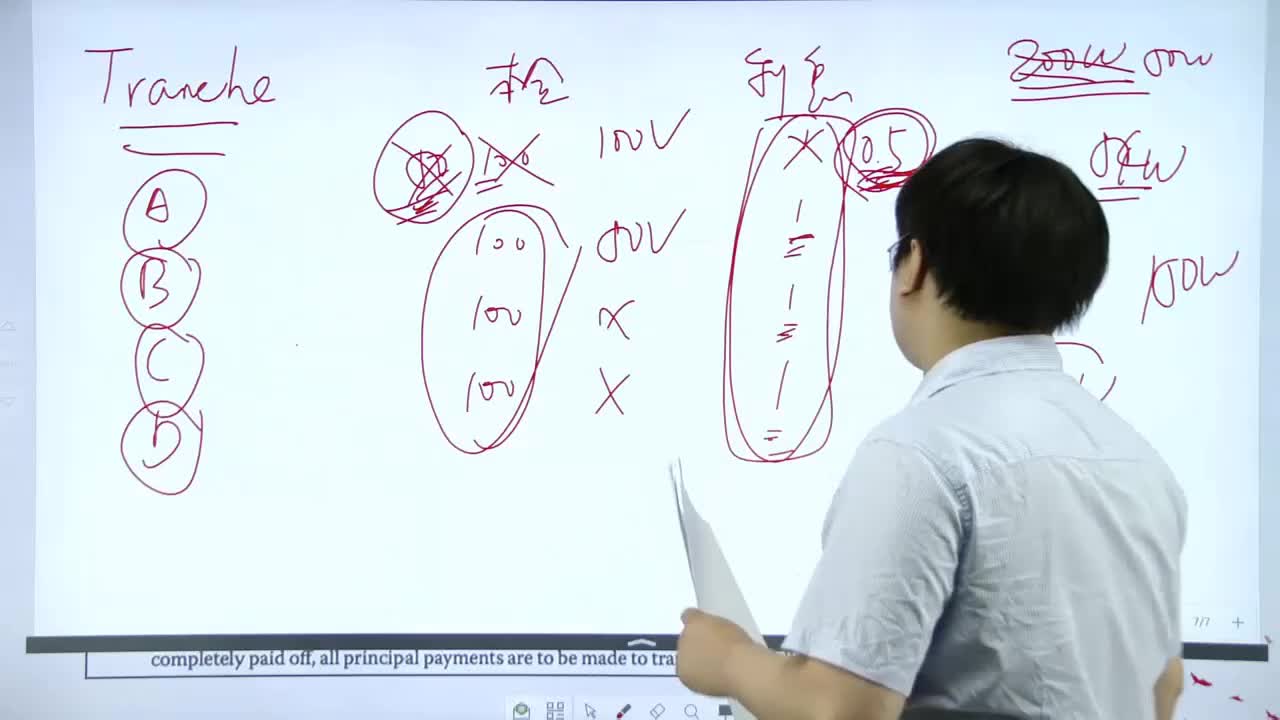 Tranche 本金 利息 200W 50W
50 100 100 √ × 0.5
A
100 50 √ 1
B 50W
100 × 1
C
100 × 1
D
7/7
completely paid off, all principal payments are to be made to